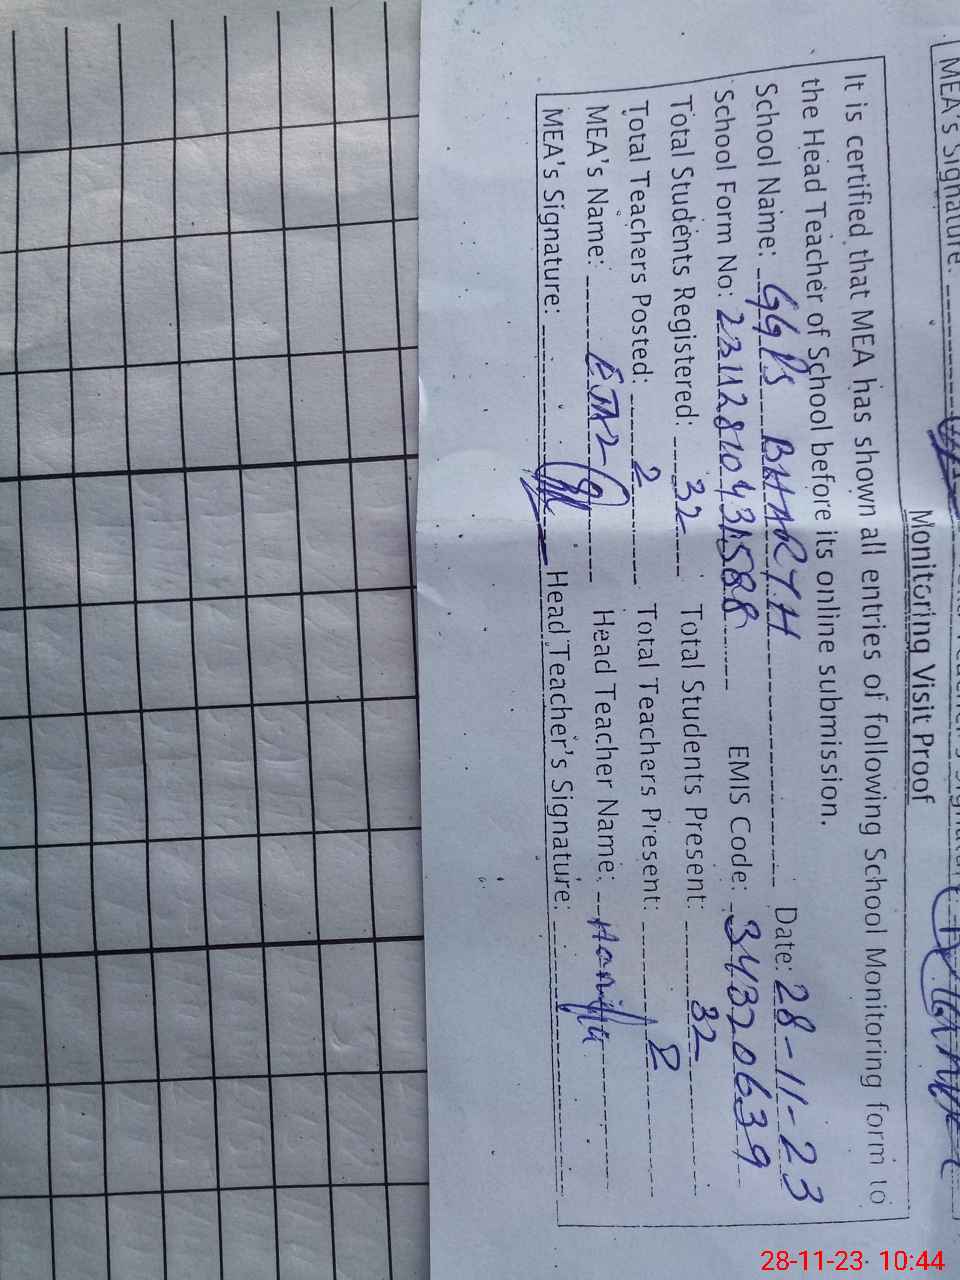 MEA's Signature:
Monitoring Visit Proof
It is certified that MEA has shown all entries of following School Monitoring form to
the Head Teacher of School before its online submission.
School Name: GGPS BHARTH Date: 28-11-23
School Form No: EMIS Code: 34320639
Total Students Registered: 32 Total Students Present: 32
Total Teachers Posted: 2 Total Teachers Present: 2
MEA's Name: Head Teacher Name:
MEA's Signature: Head Teacher's Signature:
28-11-23 10:44